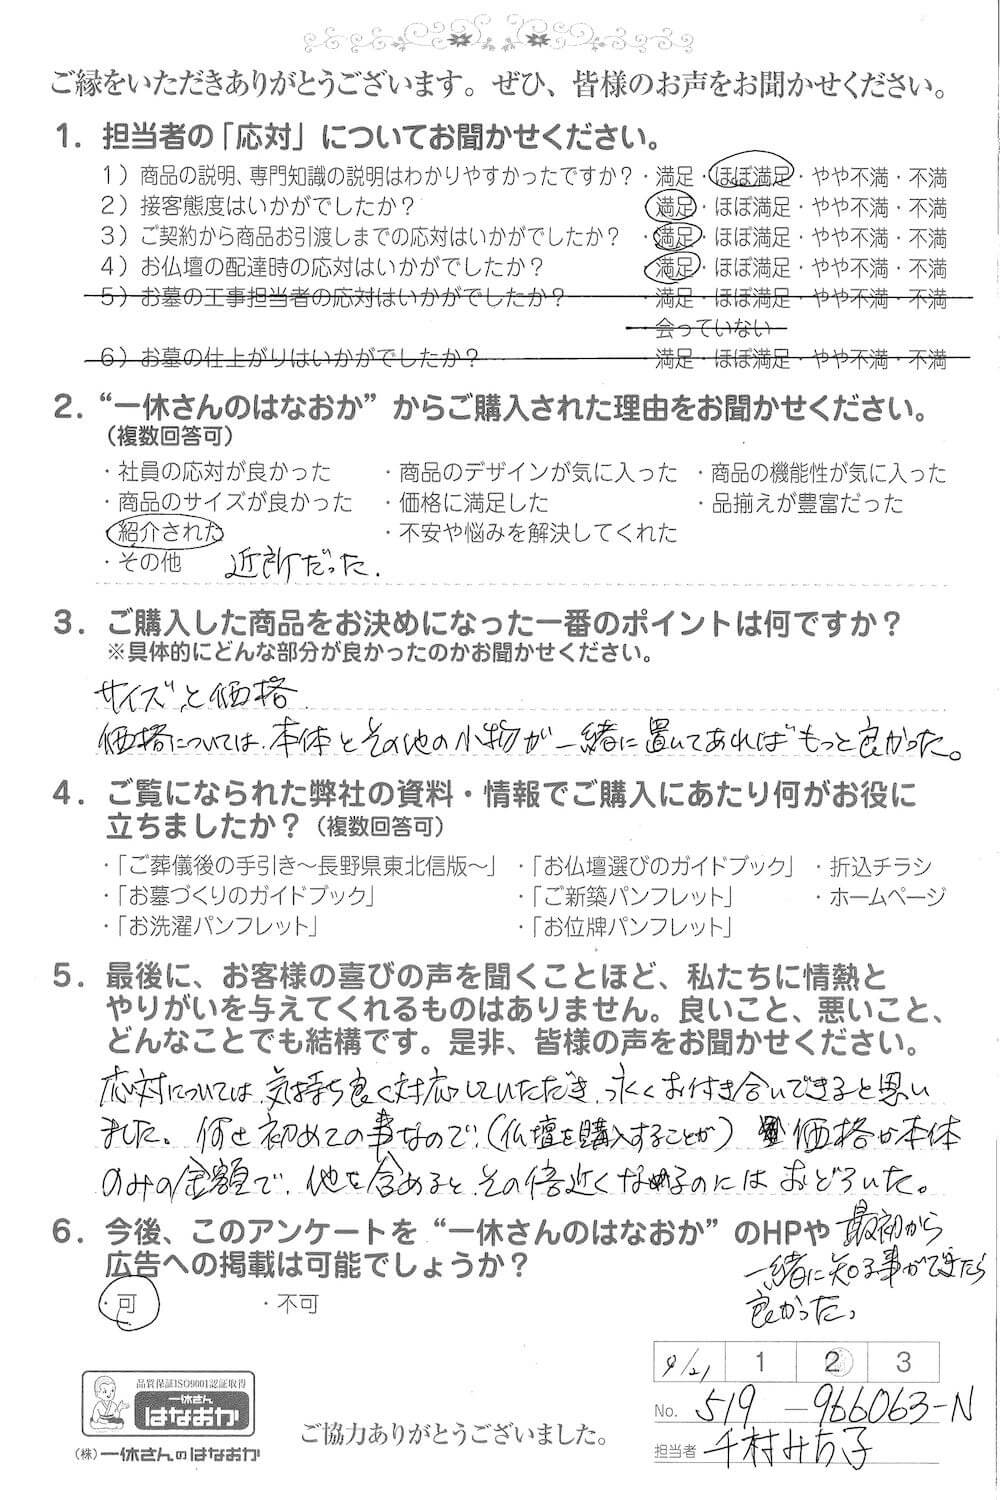 ご縁をいただきありがとうございます。ぜひ、皆様のお声をお聞かせください。
1. 担当者の「応対」についてお聞かせください。
1）商品の説明、専門知識の説明はわかりやすかったですか？・満足・ほぼ満足・やや不満・不満
2）接客態度はいかがでしたか？ ・満足・ほぼ満足・やや不満・不満
3）ご契約から商品お引渡しまでの応対はいかがでしたか？ ・満足・ほぼ満足・やや不満・不満
4）お仏壇の配達時の応対はいかがでしたか？ ・満足・ほぼ満足・やや不満・不満
5）お墓の工事担当者の応対はいかがでしたか？ ・満足・ほぼ満足・やや不満・不満
・会っていない
6）お墓の仕上がりはいかがでしたか？ ・満足・ほぼ満足・やや不満・不満
2. “一休さんのはなおか”からご購入された理由をお聞かせください。
（複数回答可）
・社員の応対が良かった ・商品のデザインが気に入った ・商品の機能性が気に入った
・商品のサイズが良かった ・価格に満足した ・品揃えが豊富だった
・紹介された ・不安や悩みを解決してくれた
・その他 近所だった.
3. ご購入した商品をお決めになった一番のポイントは何ですか？
※具体的にどんな部分が良かったのかお聞かせください。
サイズと価格
価格については、本体とその他の小物が一緒に置いてあればもっと良かった。
4. ご覧になられた弊社の資料・情報でご購入にあたり何がお役に
立ちましたか？（複数回答可）
・「ご葬儀後の手引き～長野県東北信版～」 ・「お仏壇選びのガイドブック」 ・折込チラシ
・「お墓づくりのガイドブック」 ・「ご新築パンフレット」 ・ホームページ
・「お洗濯パンフレット」 ・「お位牌パンフレット」
5. 最後に、お客様の喜びの声を聞くことほど、私たちに情熱と
やりがいを与えてくれるものはありません。良いこと、悪いこと、
どんなことでも結構です。是非、皆様の声をお聞かせください。
応対については、気持ち良く対応していただき、永くお付き合いできると思い
ました。何せ初めての事なので、（仏壇を購入することが）価格が本体
のみの金額で、他を含めるとその倍近くなるのにはおどろいた。
最初から
一緒に知る事ができたら
良かった。
6. 今後、このアンケートを“一休さんのはなおか”のHPや
広告への掲載は可能でしょうか？
・可 ・不可
9/21 1 2 3
No. 519 -966063-N
担当者 千村みち子
品質保証ISO9001認証取得
一休さん
はなおか
（株）一休さんのはなおか
ご協力ありがとうございました。